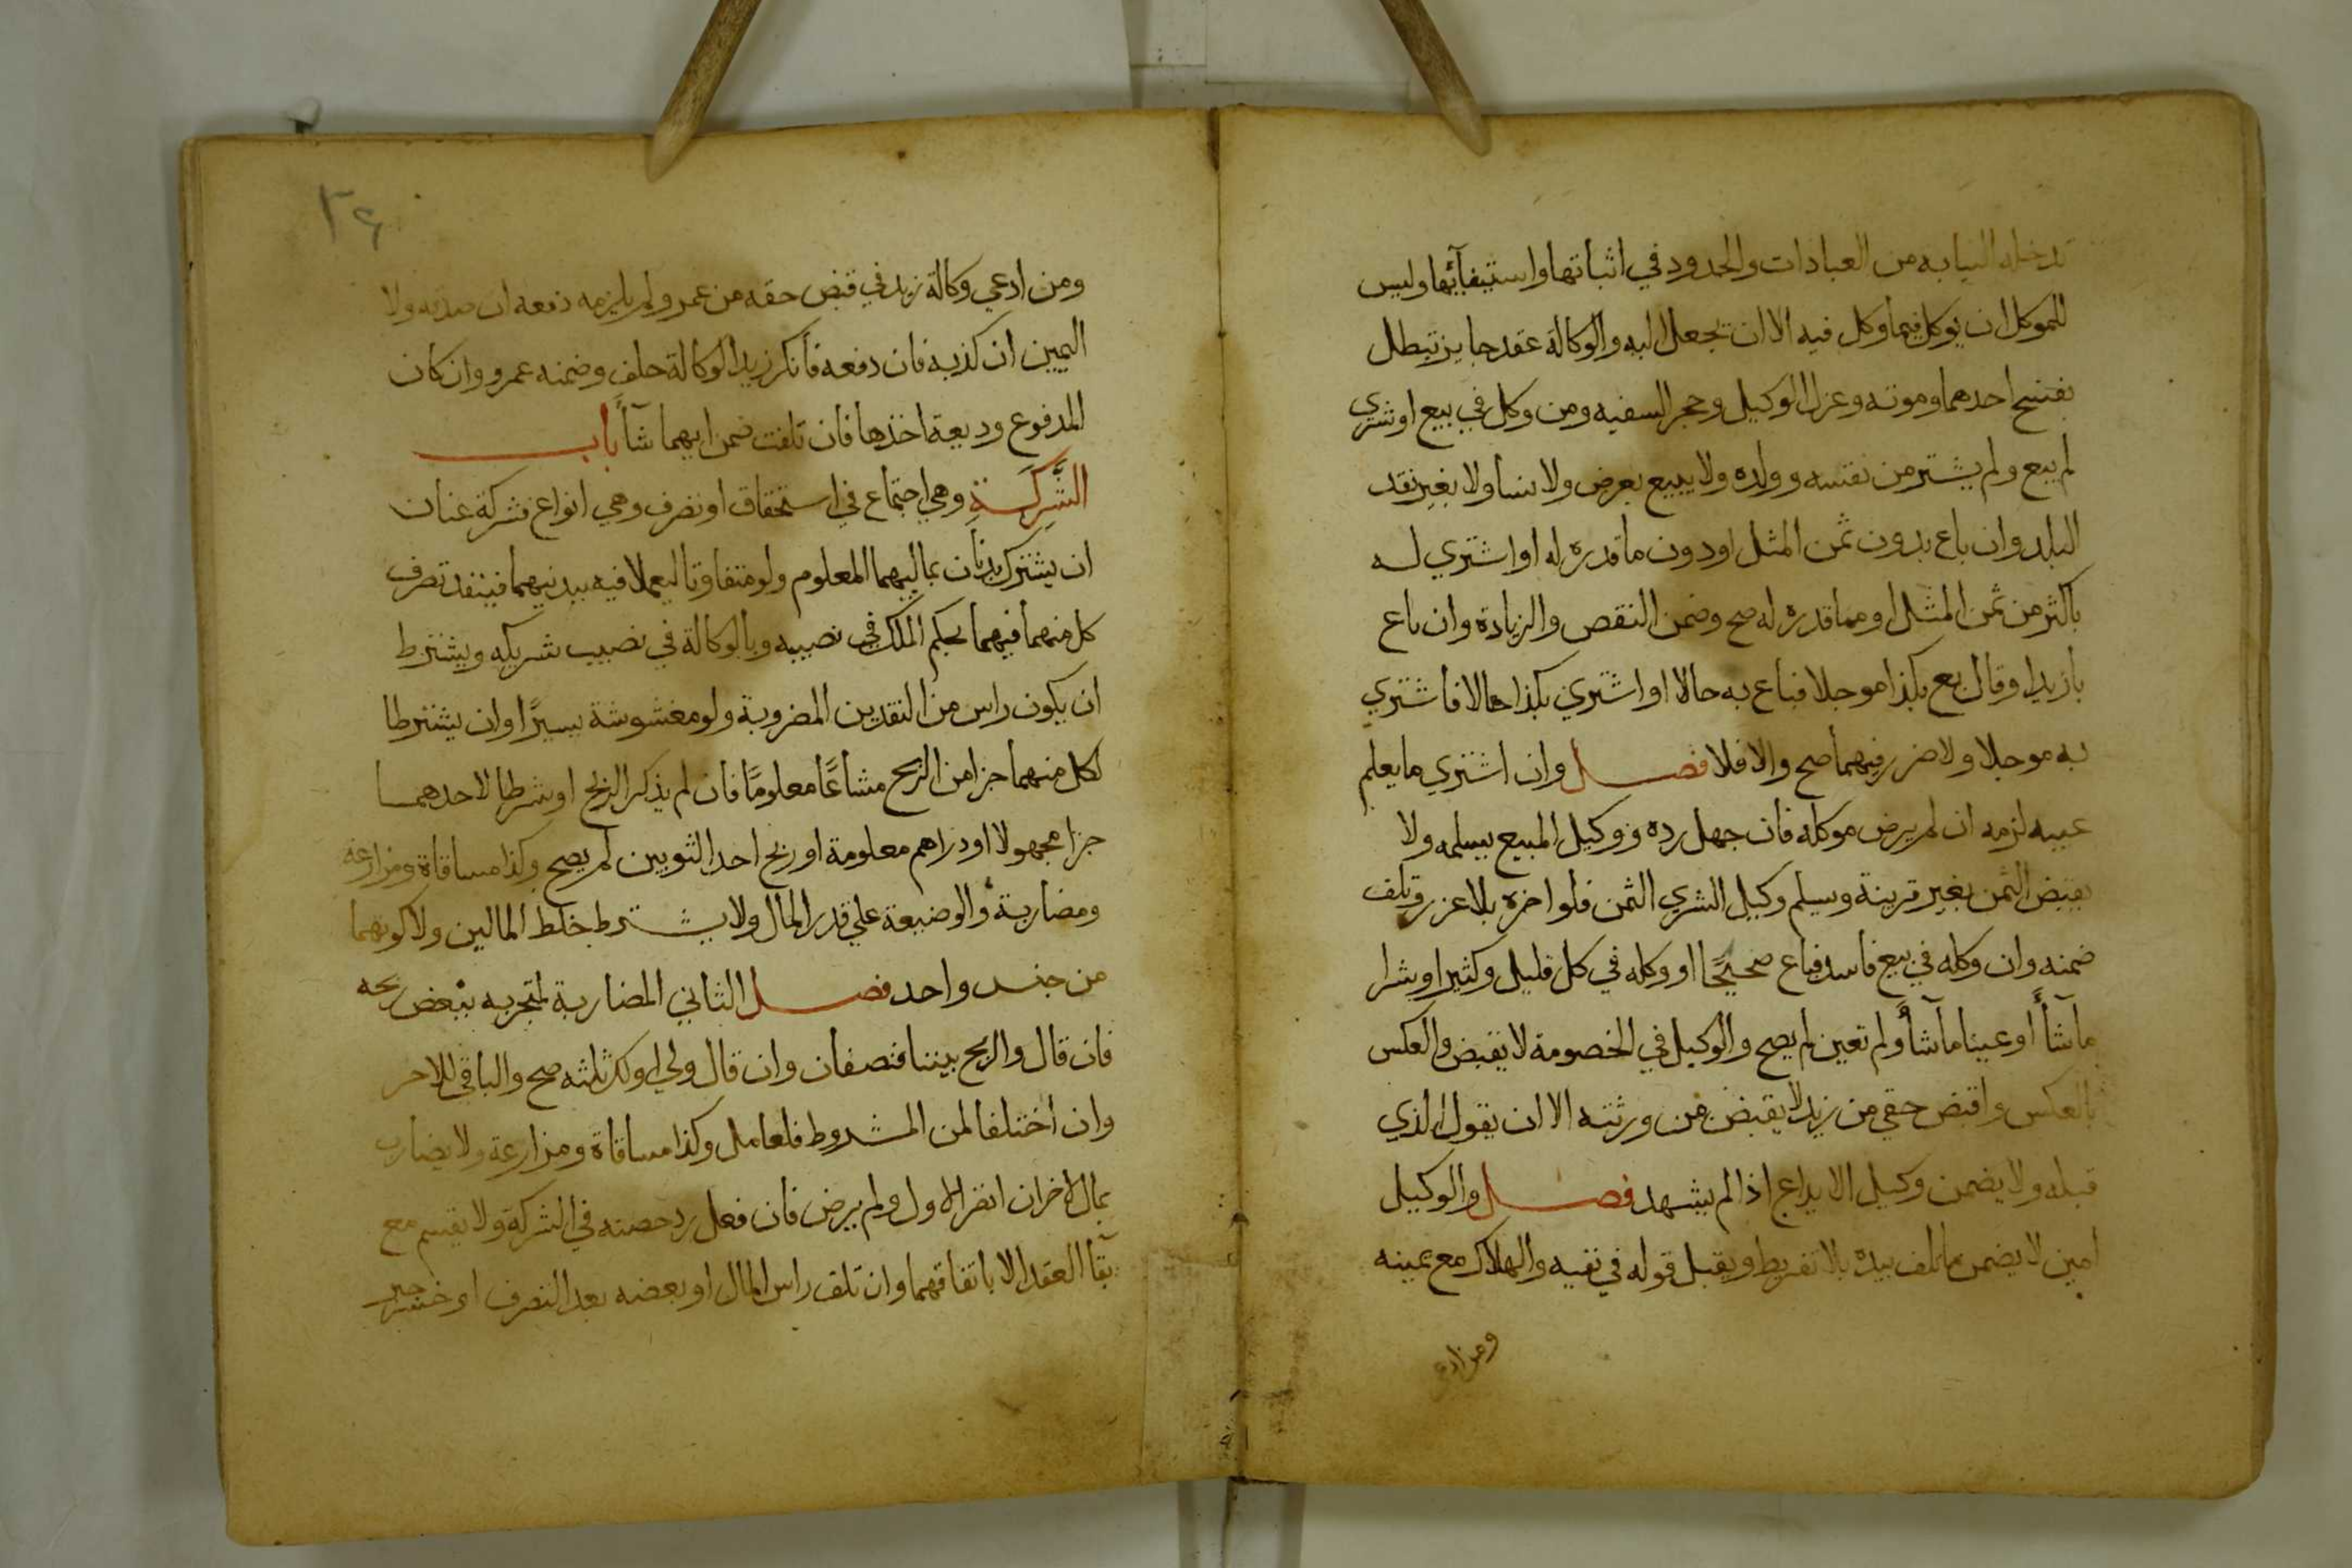 تدخله النيابه من العبادات والحدود في اثباتها واستيفآئها وليس
للموكل ان يوكل فيما وكل فيه الا ان يجعل اليه والوكالة عقد جايز تبطل
بفسخ احدهما وموته وعزل الوكيل وحجر السفيه ومن وكل في بيع او شرى
لم يبع ولم يشتر من نفسه وولده ولا يبيع بعرض ولا نسا ولا بغير نقد
البلد وان باع بدون ثمن المثل او دون ما قدره له او اشتري له
باكثر من ثمن المثل او مما قدره له صح وضمن النقص والزيادة وان باع
بازيد او قال بع بكذا موجلا فباع به حالا او اشتري بكذا حالا فاشتري
به موجلا ولا ضرر فيهما صح والا فلا فصل وان اشتري ما يعلم
عيبه لزمه ان لم يرض موكله فان جهل رده ووكيل المبيع يسلمه ولا
يقبض الثمن بغير قرينة ويسلم وكيل الشري الثمن فلو اخره بلا عزر وتلف
ضمنه وان وكله في بيع فاسد فباع صحيحًا او وكله في كل قليل وكثير او شرا
ما شآأ او عينا مآ شآأ ولم تعين لم يصح والوكيل في الخصومة لا يقبض والعكس
بالعكس واقبض حقي من زيد لا يقبض من ورثته الا ان يقول الذي
قبله ولا يضمن وكيل الايداع اذا لم يشهد فصل والوكيل
امين لا يضمن ما تلف بيده بلا تفريط ويقبل قوله في نفيه والهلاك مع يمينه
ومن ادعي
٣٤
ومن ادعي وكالة زيد في قبض حقه من عمرو لم يلزمه دفعه ان صدقه ولا
اليمين ان كذبه فان دفعه فانكر زيد الوكالة حلف وضمنه عمرو وان كان
المدفوع وديعة اخذها فان تلفت ضمن ايهما شآأ باب
الشَّرِكَةِ وهي اجتماع في استحقاق او تصرف وهي انواع فشركة عنان
ان يشترك بدنان بماليهما المعلوم ولو متفاوتا ليعملا فيه ببدنيهما فينفذ تصرف
كل منهما فيهما بحكم الملك في نصيبه وبالوكالة في نصيب شريكه ويشترط
ان يكون راس من النقدين المضروبة ولو مغشوشة يسيرًا وان يشترطا
لكل منهما جزا من الربح مشاعًا معلومًا فان لم يذكر الربح او شرطا لاحدهما
جزا مجهولا او دراهم معلومة او ربح احد الثوبين لم يصح وكذا مساقاة ومزارعة
ومضاربة والوضيعة علي قدر المال ولا يشترط خلط المالين ولا كونهما
من جنس واحد فصل الثاني المضاربة لمتجر به ببعض ربحه
فان قال والربح بيننا فنصفان وان قال ولي او لك ثلثه صح والباقي للاخر
وان اختلفا لمن المشروط فلعامل وكذا مساقاة ومزارعة ولا يضارب
بمال لاخر ان اضر الاول ولم يرض فان فعل رد حصته في الشركة ولا يقسم مع
بقآ العقد الا باتفاقهما وان تلف راس المال او بعضه بعد التصرف او خسر جبر